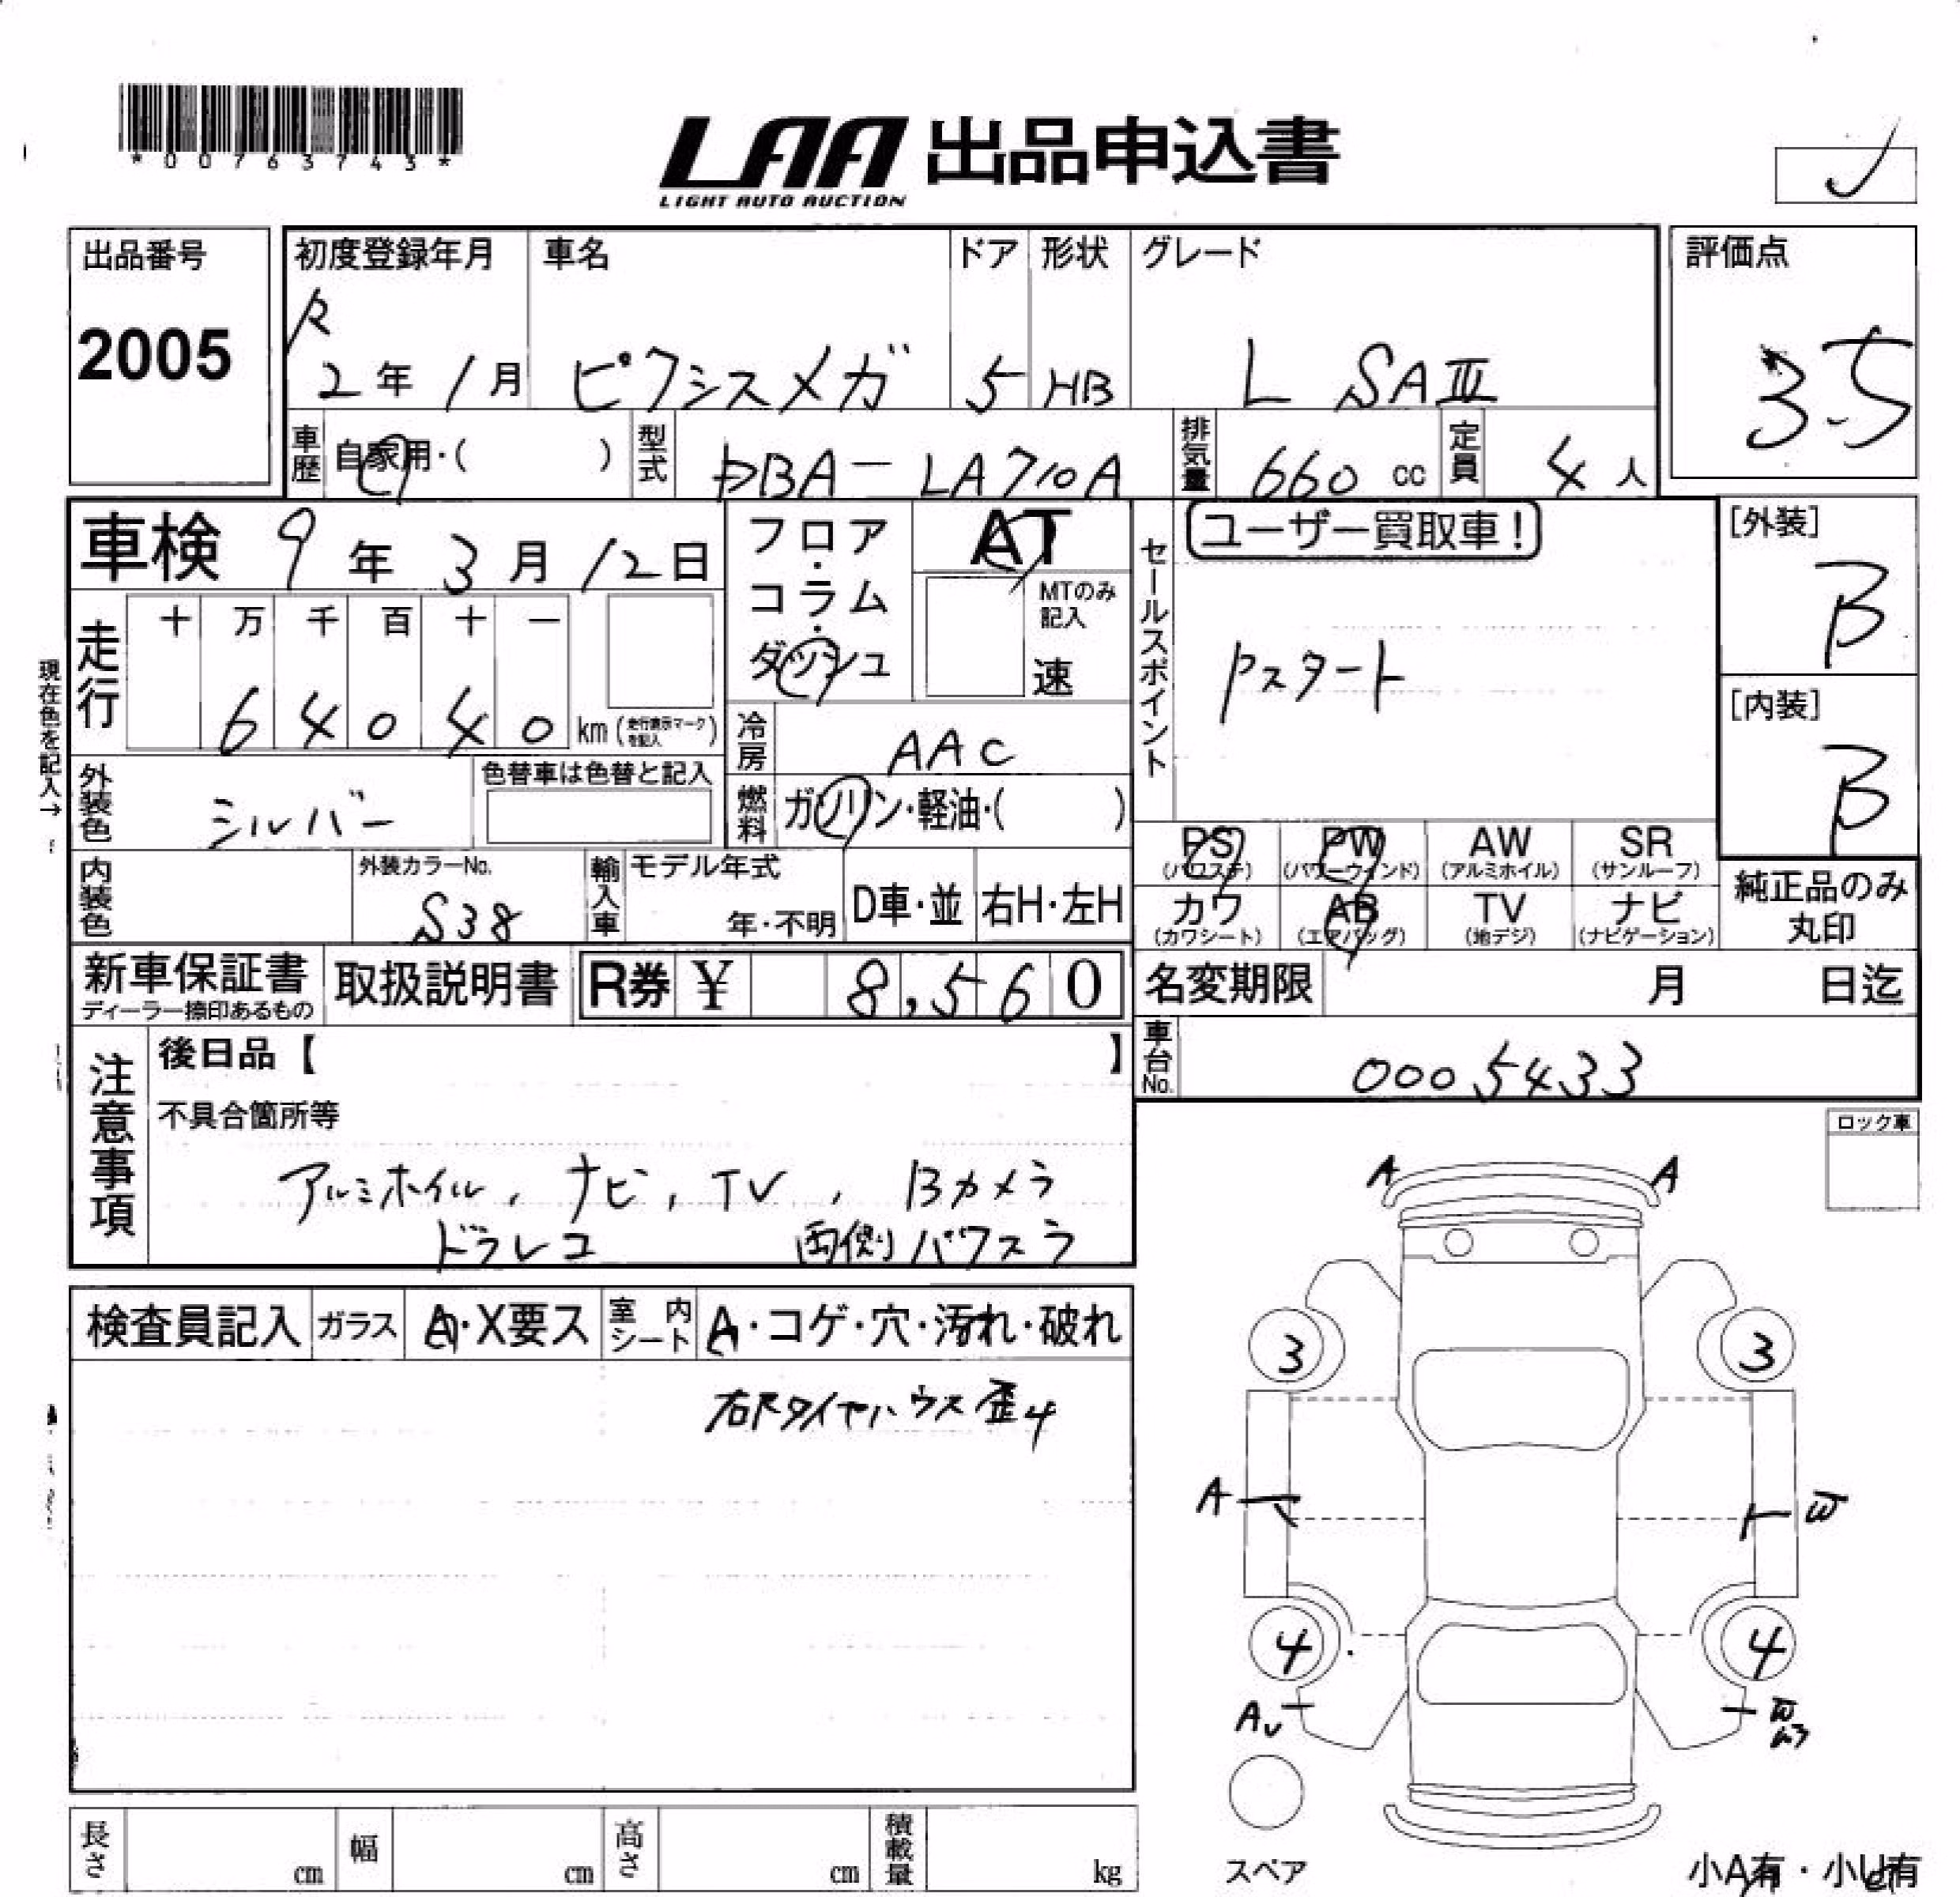 *00763743*
LAA 出品申込書
LIGHT AUTO AUCTION
出品番号
2005
初度登録年月
R
2年 1月
車名
ピクシスメガ
ドア
5
形状
HB
グレード
L SAⅢ
評価点
3.5
車歴 自家用・( )
型式 DBA-LA710A
排気量 660 cc
定員 4人
車検 9年3月12日
フロア・コラム・ダッシュ
AT
MTのみ記入
速
セールスポイント
ユーザー買取車!
Pスタート
[外装]
B
[内装]
B
現在色を記入→
走行
十 万 千 百 十 一
6 4 0 4 0 km (走行表示マークを記入)
冷房 AAC
外装色 シルバー
色替車は色替と記入
燃料 ガソリン・軽油・( )
PS (パワステ)
PW (パワーウィンド)
AW (アルミホイル)
SR (サンルーフ)
カワ (カワシート)
AB (エアバッグ)
TV (地デジ)
ナビ (ナビゲーション)
純正品のみ丸印
内装色
外装カラーNo.
S38
輸入車
モデル年式
年・不明
D車・並
右H・左H
新車保証書
ディーラー捺印あるもの
取扱説明書
R券 ¥ 8,560
名変期限 月 日迄
車台No. 0005433
注意事項
後日品【 】
不具合箇所等
アルミホイル, ナビ, TV, Bカメラ
ドラレコ 両側パワスラ
ロック車
検査員記入
ガラス A・X要ス
室内シート A・コゲ・穴・汚れ・破れ
右Rタイヤハウス歪4
A A
3 3
A W
4 4
A
スペア
小A有・小U有
長さ cm
幅 cm
高さ cm
積載量 kg